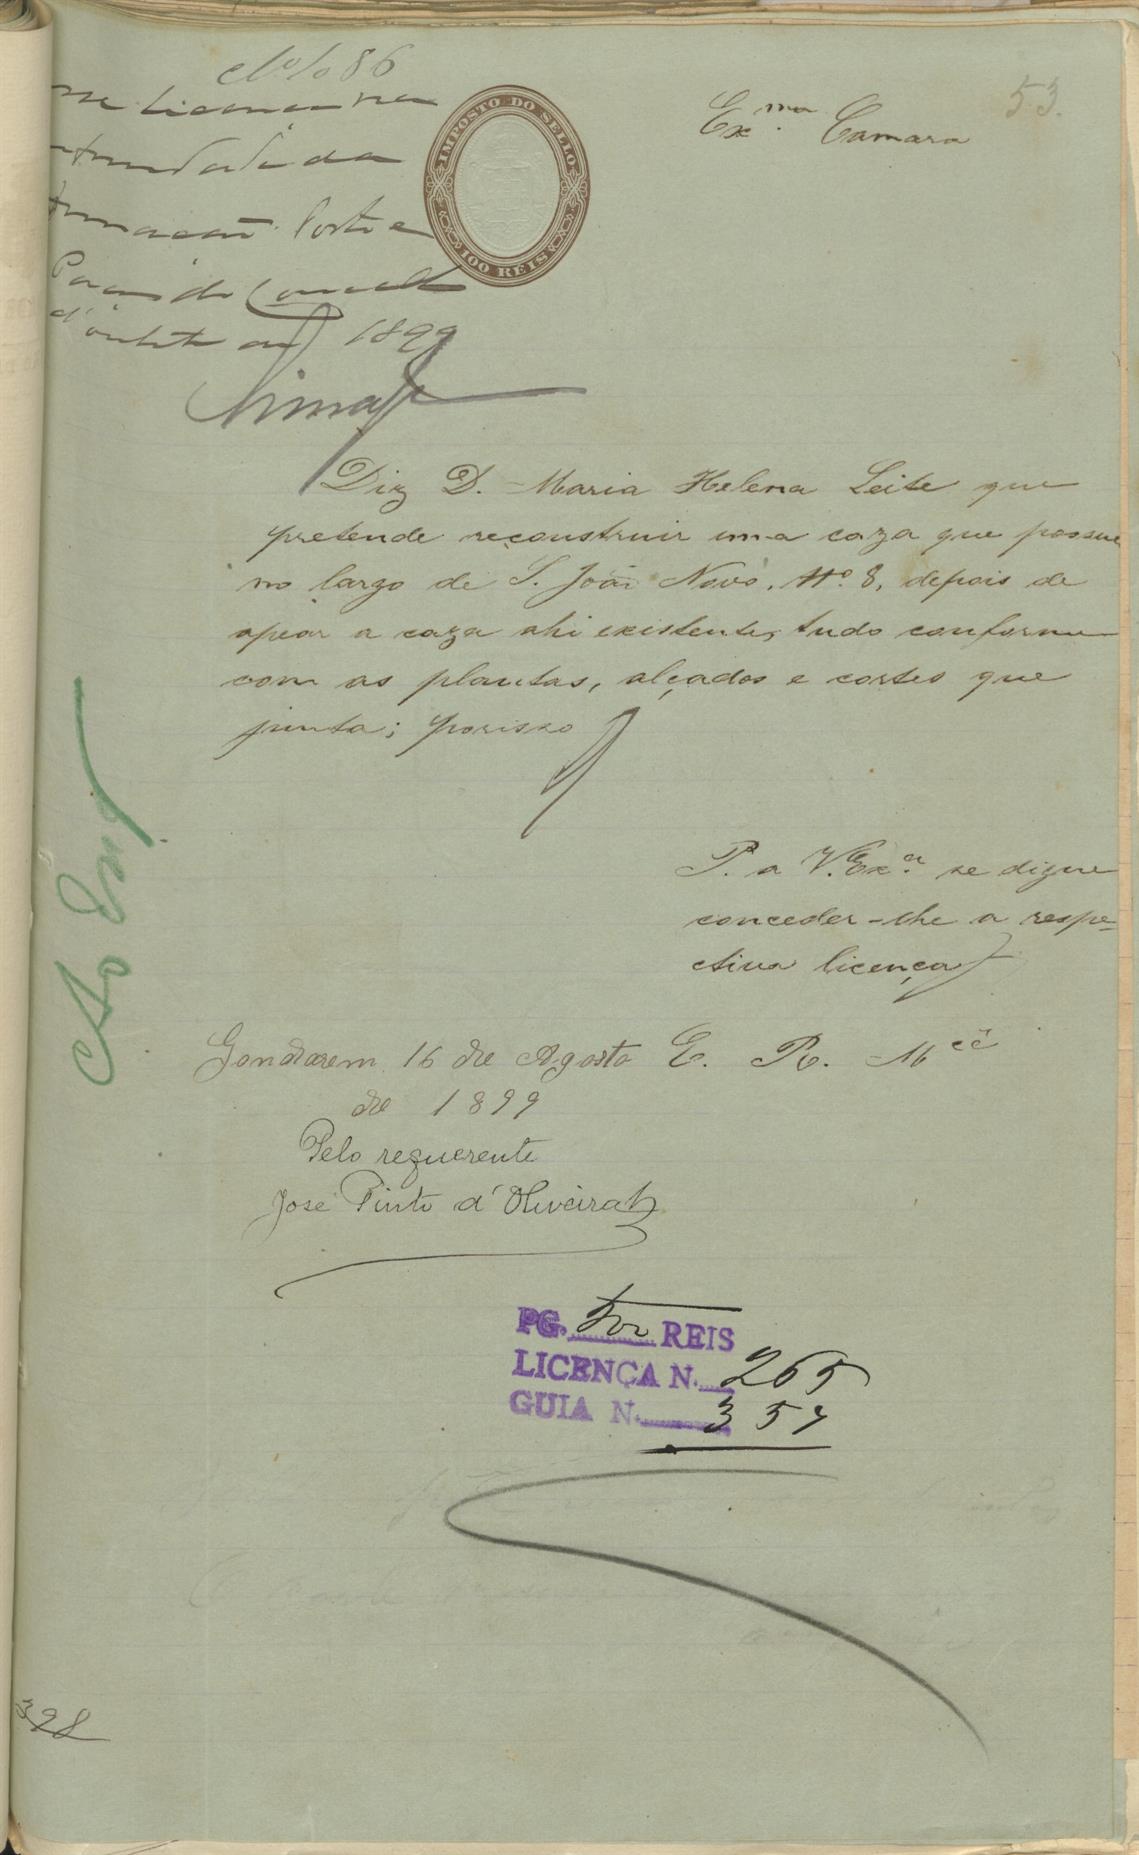 86
53.
IMPOSTO DO SELLO
100 REIS
Ex.ma Camara
licença
da
Porto e
Paços do Concelho
1899
Lima
Diz D. Maria Helena Leite que
pretende reconstruir uma caza que possue
no largo de S. João Novo, Nº. 8, depois de
apear a caza ahi existente, tudo conforme
com as plantas, alçados e cortes que
junta; porisso
P. a V. Ex.a se digne
conceder-lhe a respe-
ctiva licença
Ao Eng
Gondarem 16 de Agosto E. R. Mcê
de 1899
Pelo requerente
José Pinto d'Oliveira
PG. REIS
LICENÇA N. 265
GUIA N. 357
398